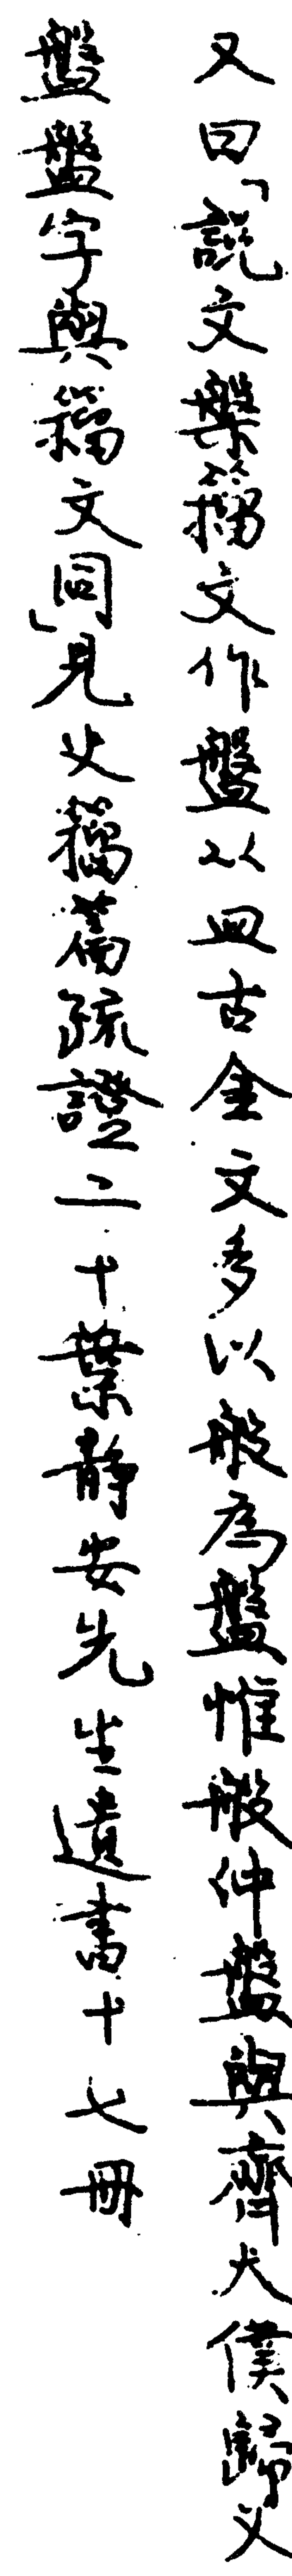 又曰「說文槃籀文作盤以皿古金文多以般為盤惟般仲盤與齊大僕歸父
盤盤字與籀文同」見史籀篇疏證二十葉靜安先生遺書十七冊